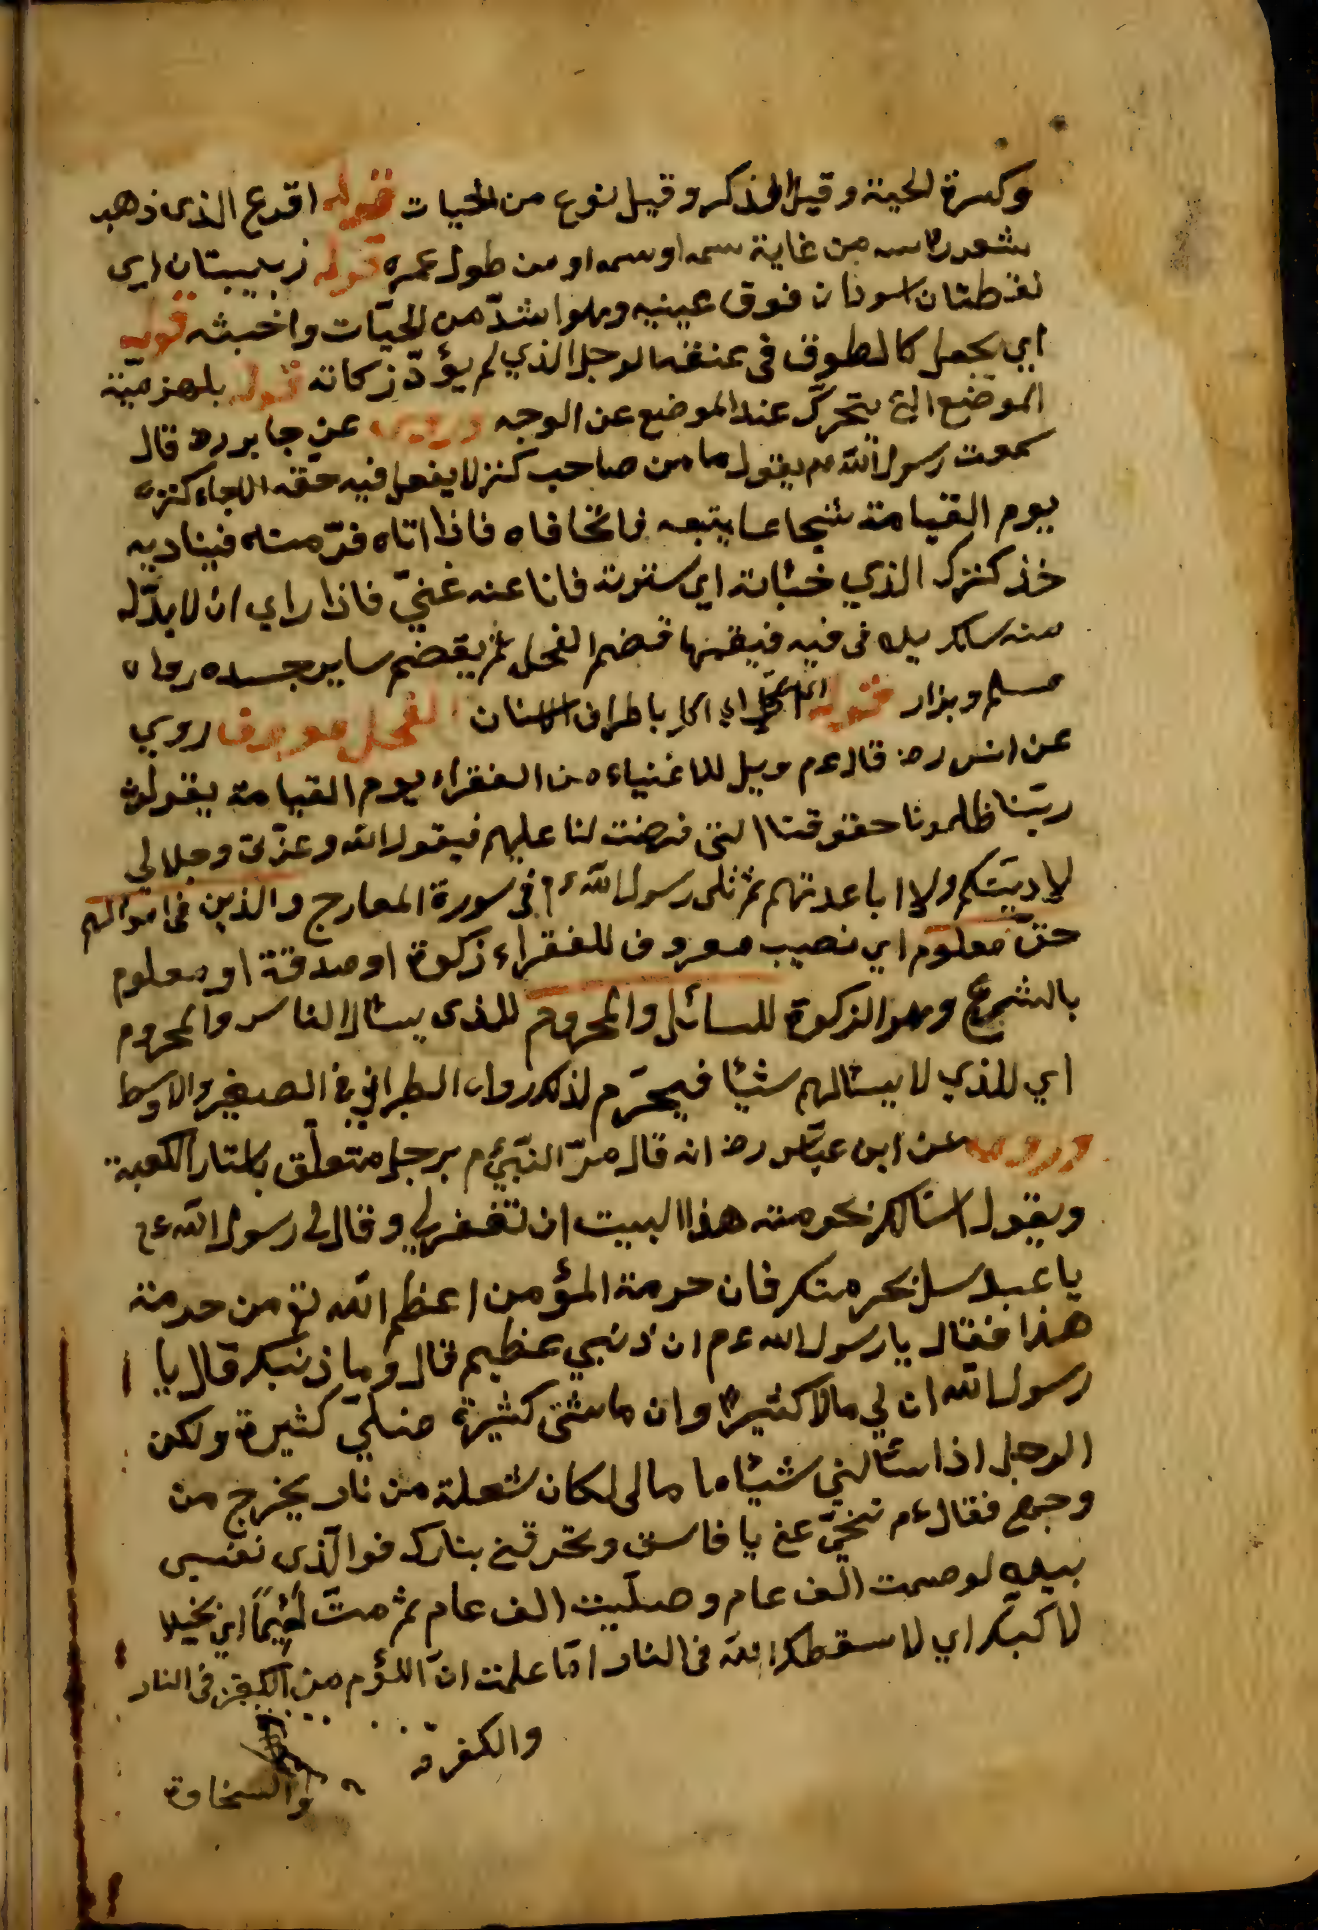 وكسرة الحية وقيل الذكر وقيل نوع من الحيات قوله اقرع الذى ذهب
شعر راسه من غاية سمه او من طول عمره قوله زبيبتان اى
نقطتان سودان فوق عينيه وهو اشدّ من الحيّات واخبثه قوله
اي يجعل كالطوق فى عنقه الرجل الذي لم يؤدّ زكاته قوله بلهزميّة
الموضع التى يتحرّك عند الموضع عن الوجه وروى عن جابر ره قال
سمعت رسول الله عم يقول ما من صاحب كنز لا يفعل فيه حقه الا جاء كنزه
يوم القيامة شجاعا يتبعه فاتحا فاه فاذا اتاه فرّ منه فيناديه
خذ كنزك الذي خبئاته اي سترته فانا عنه غنيّ فاذا راي ان لا بدّ له
منه سلك يده فى فيه فيقضمها قضم الفحل ثم يقضم ساير جسده رواه
مسلم وبزار قوله اي اكل باطراف الاسنان الفحل معروف روي
عن انس رض قال عم ويل للاغنياء من الفقراء يوم القيامة يقولون
ربّنا ظلمونا حقوقنا التى فرضت لنا عليهم فيقول الله وعزّتى وجلالي
لادنيتكم ولا اباعدنهم ثم تلى رسول الله عم فى سورة المعارج والذين فى اموالهم
حقّ معلوم اي نصيب معروف للفقراء زكوة او صدقة او معلوم
بالشرع وهو الزكوة للسائل والمحروم للذى يسئال الناس والمحروم
اي للذي لا يسئالهم شيئا فيحرّم لذلك رواه الطبرانى فى الصغير والاوسط
وروى عن ابن عبّاس رض انه قال مرّ النّبيّ عم برجل متعلّق باستار الكعبة
ويقول اسئالك بحرمة هذا البيت ان تغفر لي وقال له رسول الله عم
يا عبد سل بحرمتك فان حرمة المؤمن اعظم الله تع من حرمة
هذا فقال يا رسول الله عم ان ذنبي عظيم قال وما ذنبك قال يا
رسول الله ان لي مالا كثيرا وان ماشتى كثيرة خيلى كثيرة ولكن
الرجل اذا سئالني شيئا ما مالى لكان شعلة من نار يخرج من
وجهى فقال عم تنحّ عنى يا فاسق وتحرقنى بنارك فوالّذى نفسى
بيده لو صمت الف عام وصلّيت الف عام ثم متّ لئيماً اي بخيلا
لاكبّك اي لاسقطك الله فى النار امّا علمت انّ اللؤم من الكفر فى النار
والكفر
والسخاوة